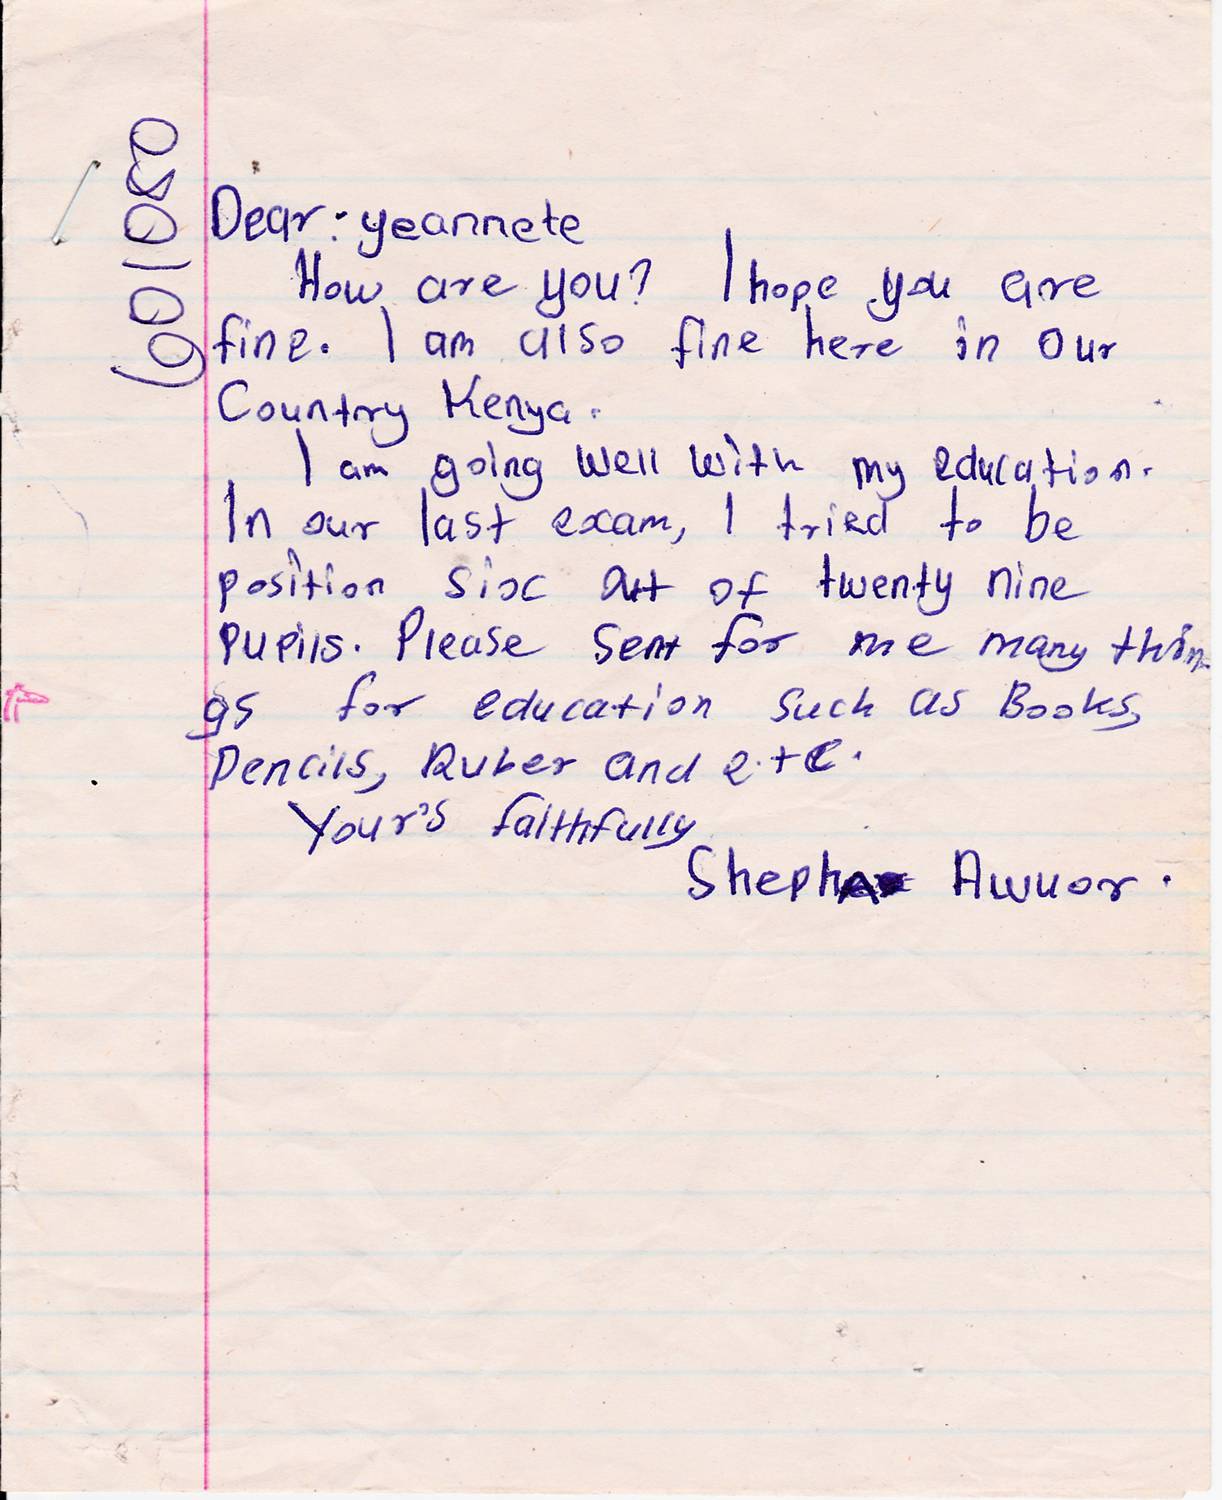 Dear: yeannete
How are you? I hope you are
fine. I am also fine here in our
Country Kenya.
I am going well with my education.
In our last exam, I tried to be
position six out of twenty nine
pupils. Please sent for me many thin-
gs for education such as Books,
Pencils, Ruber and e.t.c.
Your's faithfully
Awuor.